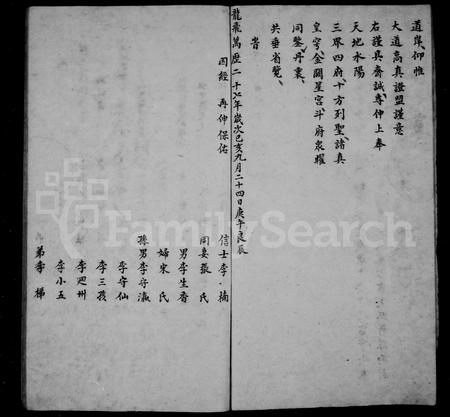 道岸、仰惟
大道高真證盟謹意
右謹具齋誠、專伸上奉
天地水陽
三界四府、十方列聖、諸真
皇穹、金闕星宮斗府衆耀
同鑒丹衷、
共垂省覽、
旹
龍飛萬曆二十七年歲次己亥九月二十四日庚午良辰
因經 再伸保佑
信士李
同妻張氏
男李生香
婦宋氏
孫男李守瀛
李守仙
李三孩
李卍卅
李小五
弟李梯
FamilySearch